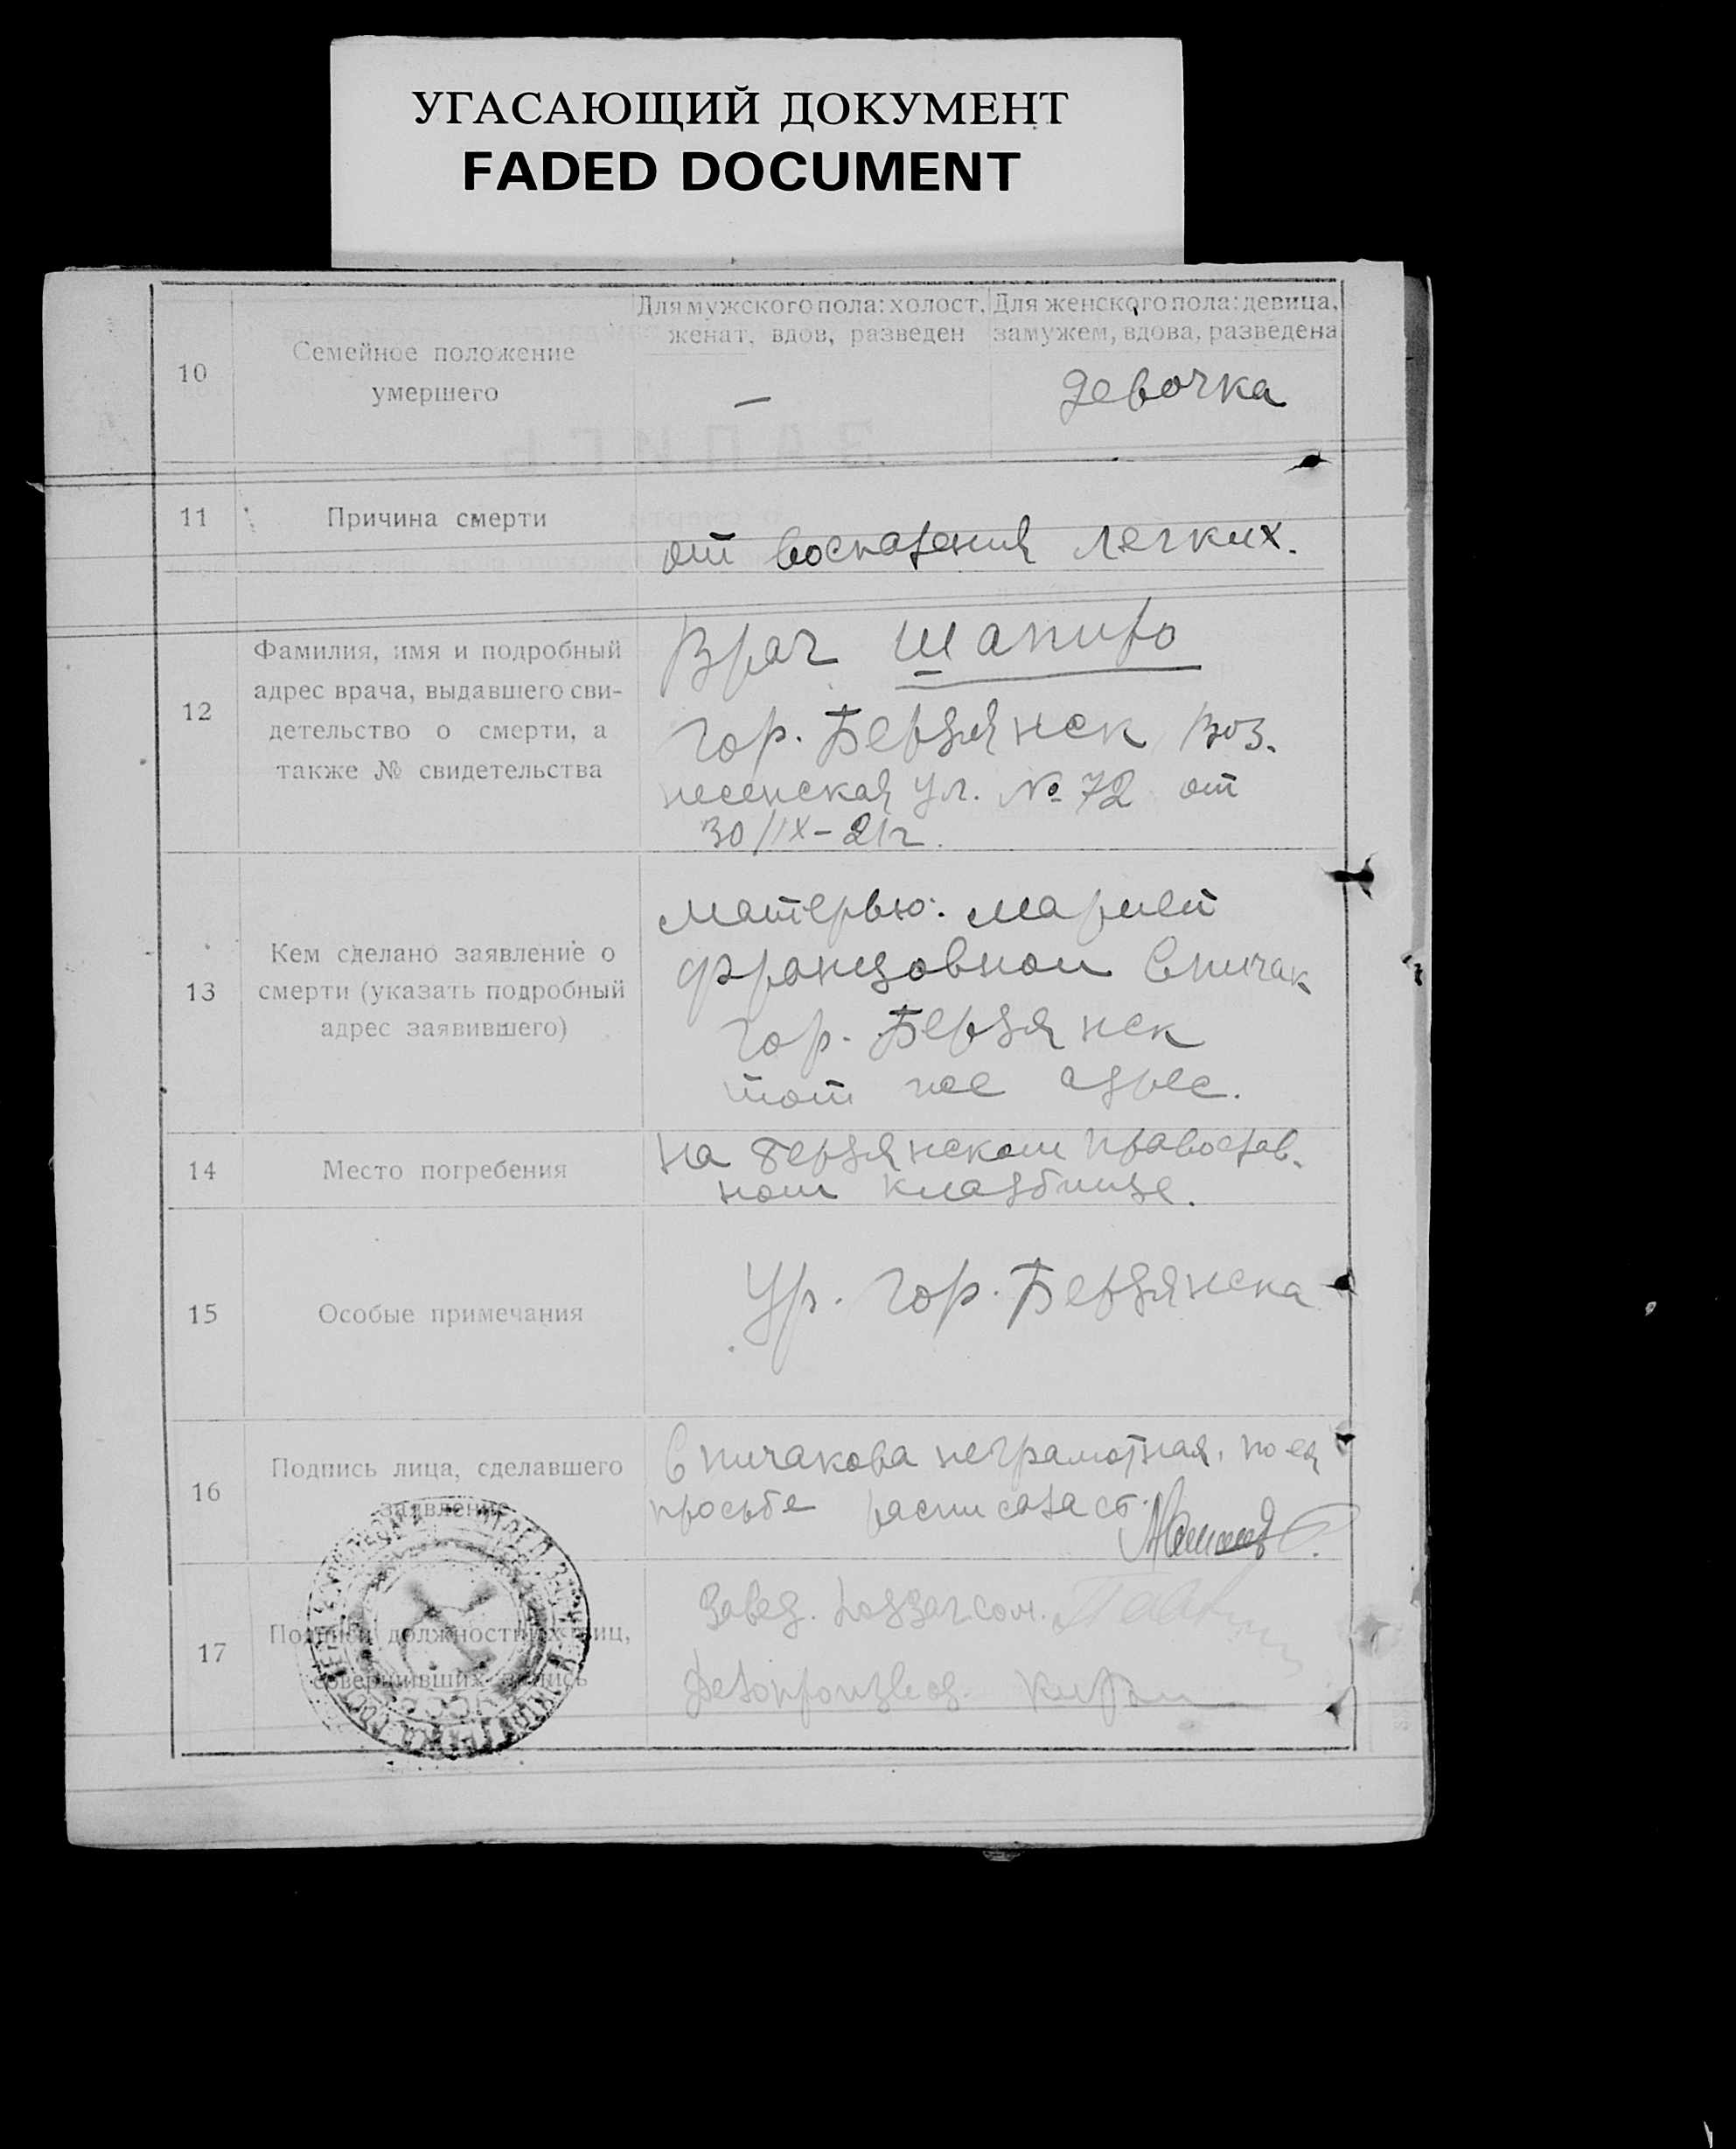 УГАСАЮЩИЙ ДОКУМЕНТ
FADED DOCUMENT
10
Семейное положение
умершего
Для мужского пола: холост,
женат, вдов, разведен
—
Для женского пола: девица,
замужем, вдова, разведена
девочка
11
Причина смерти
от воспаления легких.
12
Фамилия, имя и подробный
адрес врача, выдавшего сви-
детельство о смерти, а
также № свидетельства
Врач Шапиро
гор. Бердянск Воз.
несенская ул. № 72 от
30/IX-21 г.
13
Кем сделано заявление о
смерти (указать подробный
адрес заявившего)
матерью: Марией
Францовной Спичак
гор. Бердянск
тот же адрес.
14
Место погребения
на Бердянском православ.
ном кладбище.
15
Особые примечания
Ур. гор. Бердянска
16
Подпись лица, сделавшего
заявление
Спичакова неграмотная, по ея
просьбе расписалась
17
Подписи должностных лиц,
совершивших запись
Завед. Подзагсом.
Делопроизвод.